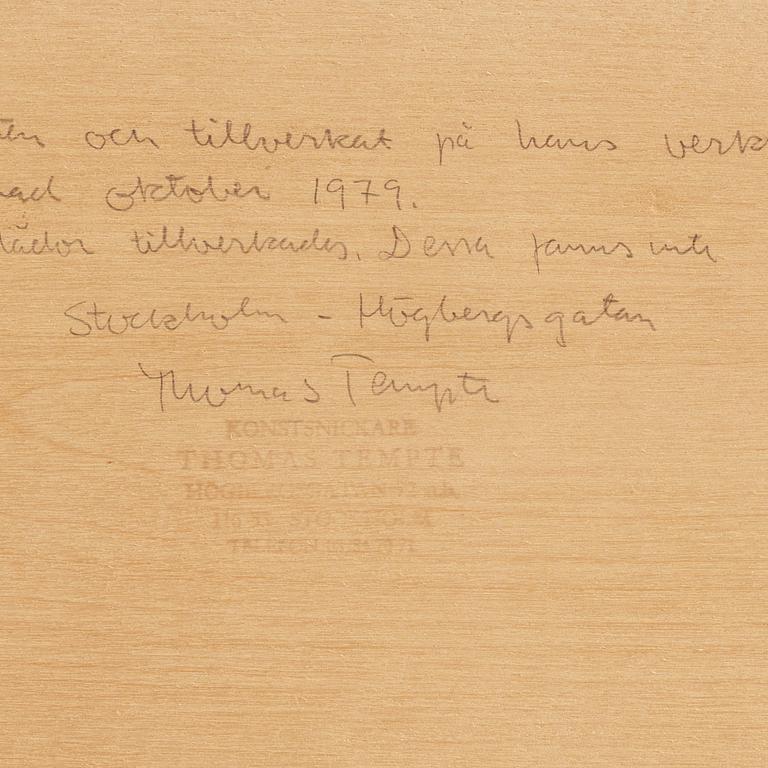 och tillverkat på hans verk
oktober 1979.
lådor tillverkades. Dessa fanns inte
Stockholm - Högbergsgatan
Thomas Tempte
KONSTSNICKARE
THOMAS TEMPTE
HÖGBERGSGATAN
STOCKHOLM
TELEFON